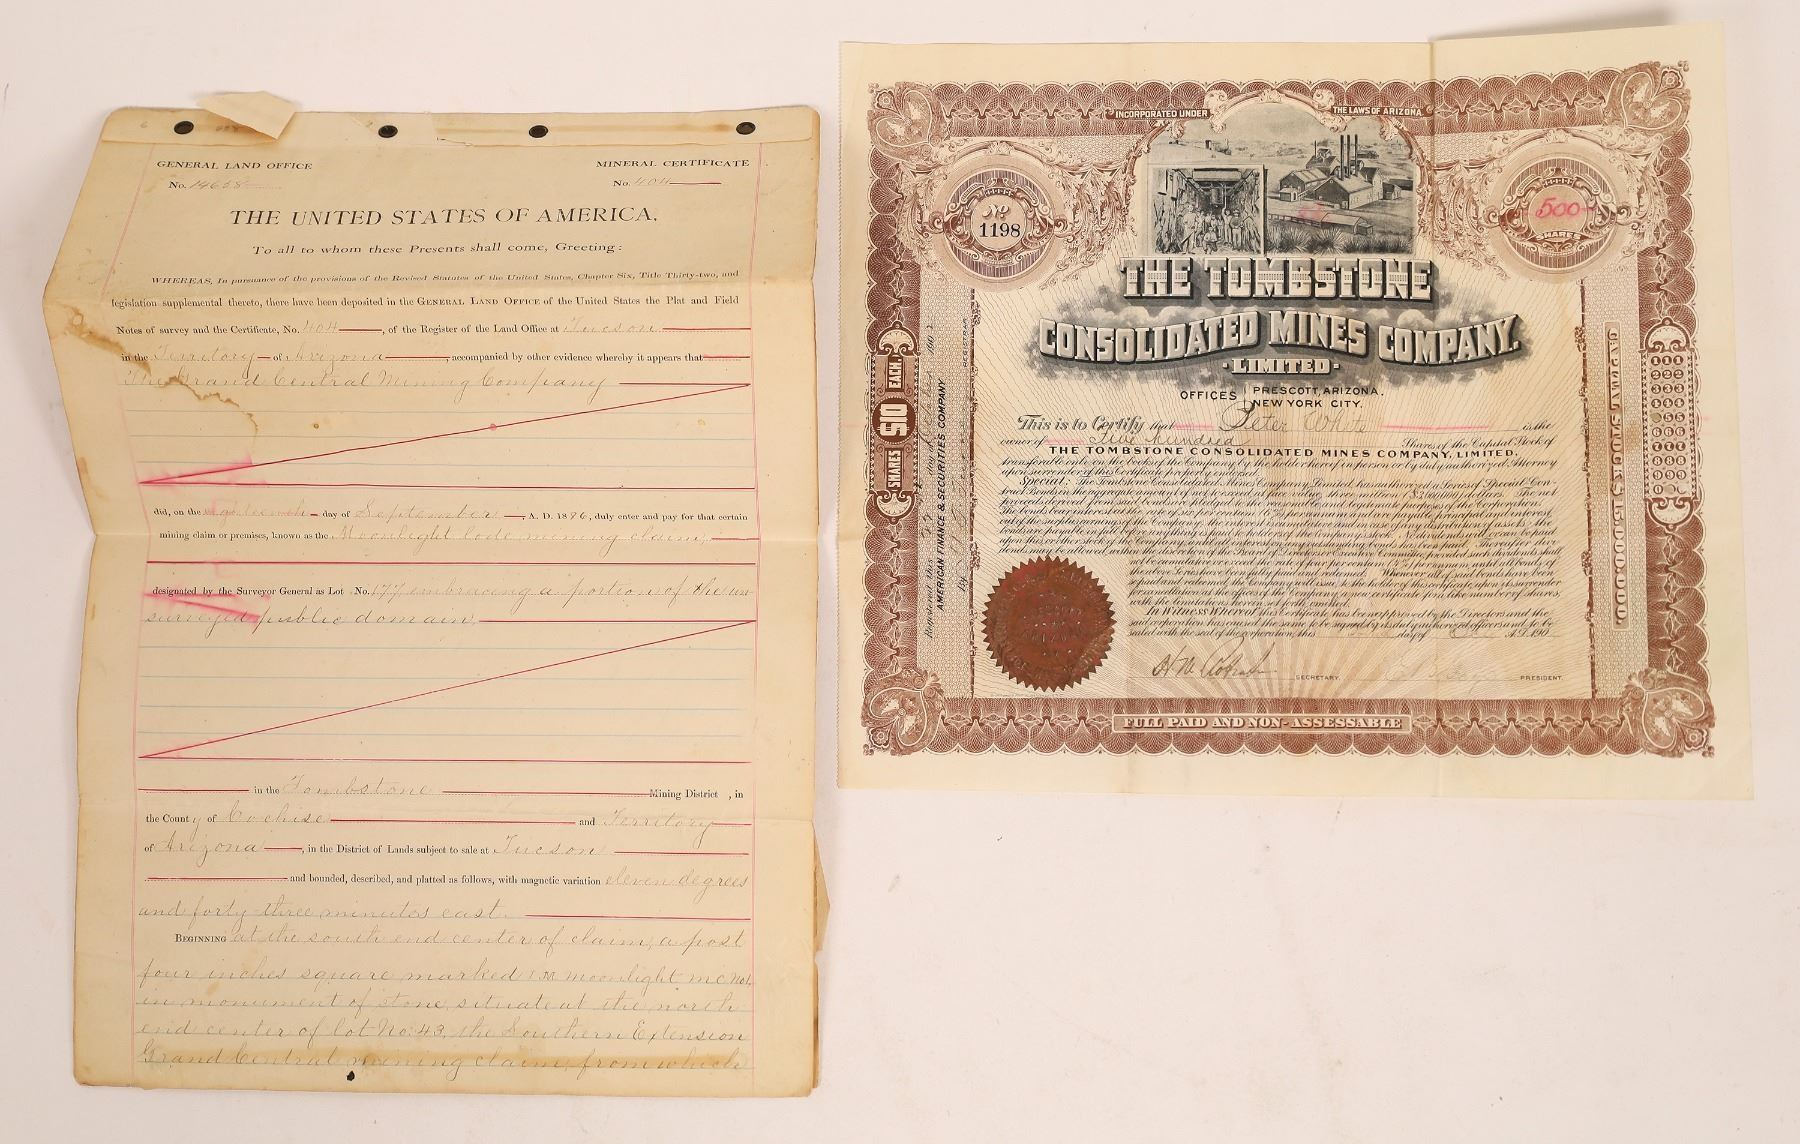 GENERAL LAND OFFICE
No. 14658
MINERAL CERTIFICATE
No. 404
THE UNITED STATES OF AMERICA,
To all to whom these Presents shall come, Greeting:
WHEREAS, In pursuance of the provisions of the Revised Statutes of the United States, Chapter Six, Title Thirty-two, and
legislation supplemental thereto, there have been deposited in the GENERAL LAND OFFICE of the United States the Plat and Field
Notes of survey and the Certificate, No. 404, of the Register of the Land Office at Tucson
in the Territory of Arizona, accompanied by other evidence whereby it appears that
The Grand Central Mining Company
did, on the day of September, A. D. 1896, duly enter and pay for that certain
mining claim or premises, known as the Moonlight lode mining claim,
designated by the Surveyor General as Lot No. 177 embracing a portion of the un
surveyed public domain,
in the Tombstone Mining District, in
the County of Cochise and Territory
of Arizona, in the District of Lands subject to sale at Tucson
and bounded, described, and platted as follows, with magnetic variation eleven degrees
and forty-three minutes east.
BEGINNING at the south end center of claim, a post
four inches square marked Moonlight M C No 1,
in monument of stone, situate at the north
end center of lot No. 43, the Southern Extension
Grand Central mining claim, from which
INCORPORATED UNDER THE LAWS OF ARIZONA
No
1198
500
SHARES
THE TOMBSTONE
CONSOLIDATED MINES COMPANY,
LIMITED
OFFICES PRESCOTT, ARIZONA.
NEW YORK CITY.
This is to Certify that Peter White is the
owner of Five hundred Shares of the Capital Stock of
THE TOMBSTONE CONSOLIDATED MINES COMPANY, LIMITED,
transferable only on the books of the Company by the holder hereof in person or by duly authorized Attorney
upon surrender of this Certificate properly endorsed.
Special: The Tombstone Consolidated Mines Company, Limited, has authorized a Series of Special Con-
tract Bonds in the aggregate amount of not to exceed at face value three million ($3,000,000) dollars. The net
proceeds derived from sale of said bonds to be used for the reasonable and legitimate purposes of the Corporation.
The bonds bear interest at the rate of six per centum (6%) per annum and are payable principal and interest,
out of the surplus earnings of the Company; the interest is cumulative and in case of any distribution of assets, the
bonds are payable in full before anything is paid to holders of the Company's stock. No dividends will or can be paid
upon this or other stock of the Company, until all interest on any outstanding bonds has been paid. Thereafter divi-
dends may be allowed within the discretion of the Board of Directors or Executive Committee, provided such dividends shall
not be cumulative or exceed the rate of four per centum (4%) per annum, until all bonds of
the above Series have been fully paid and redeemed. Whenever all of said bonds have been
repaid and redeemed, the Company will issue to the holder of this certificate, upon its surrender
for cancellation at the offices of the Company, a new certificate for like number of shares,
with the limitations herein set forth, omitted.
In Witness Whereof this Certificate has been approved by the Directors and the
said corporation has caused the same to be signed by its duly authorized officers and to be
sealed with the seal of the corporation, this day of A.D. 190
SECRETARY.
PRESIDENT.
FULL PAID AND NON-ASSESSABLE
SHARES $10 EACH
Registered this day of 190 2
AMERICAN FINANCE & SECURITIES COMPANY
By
REGISTRAR
CAPITAL STOCK